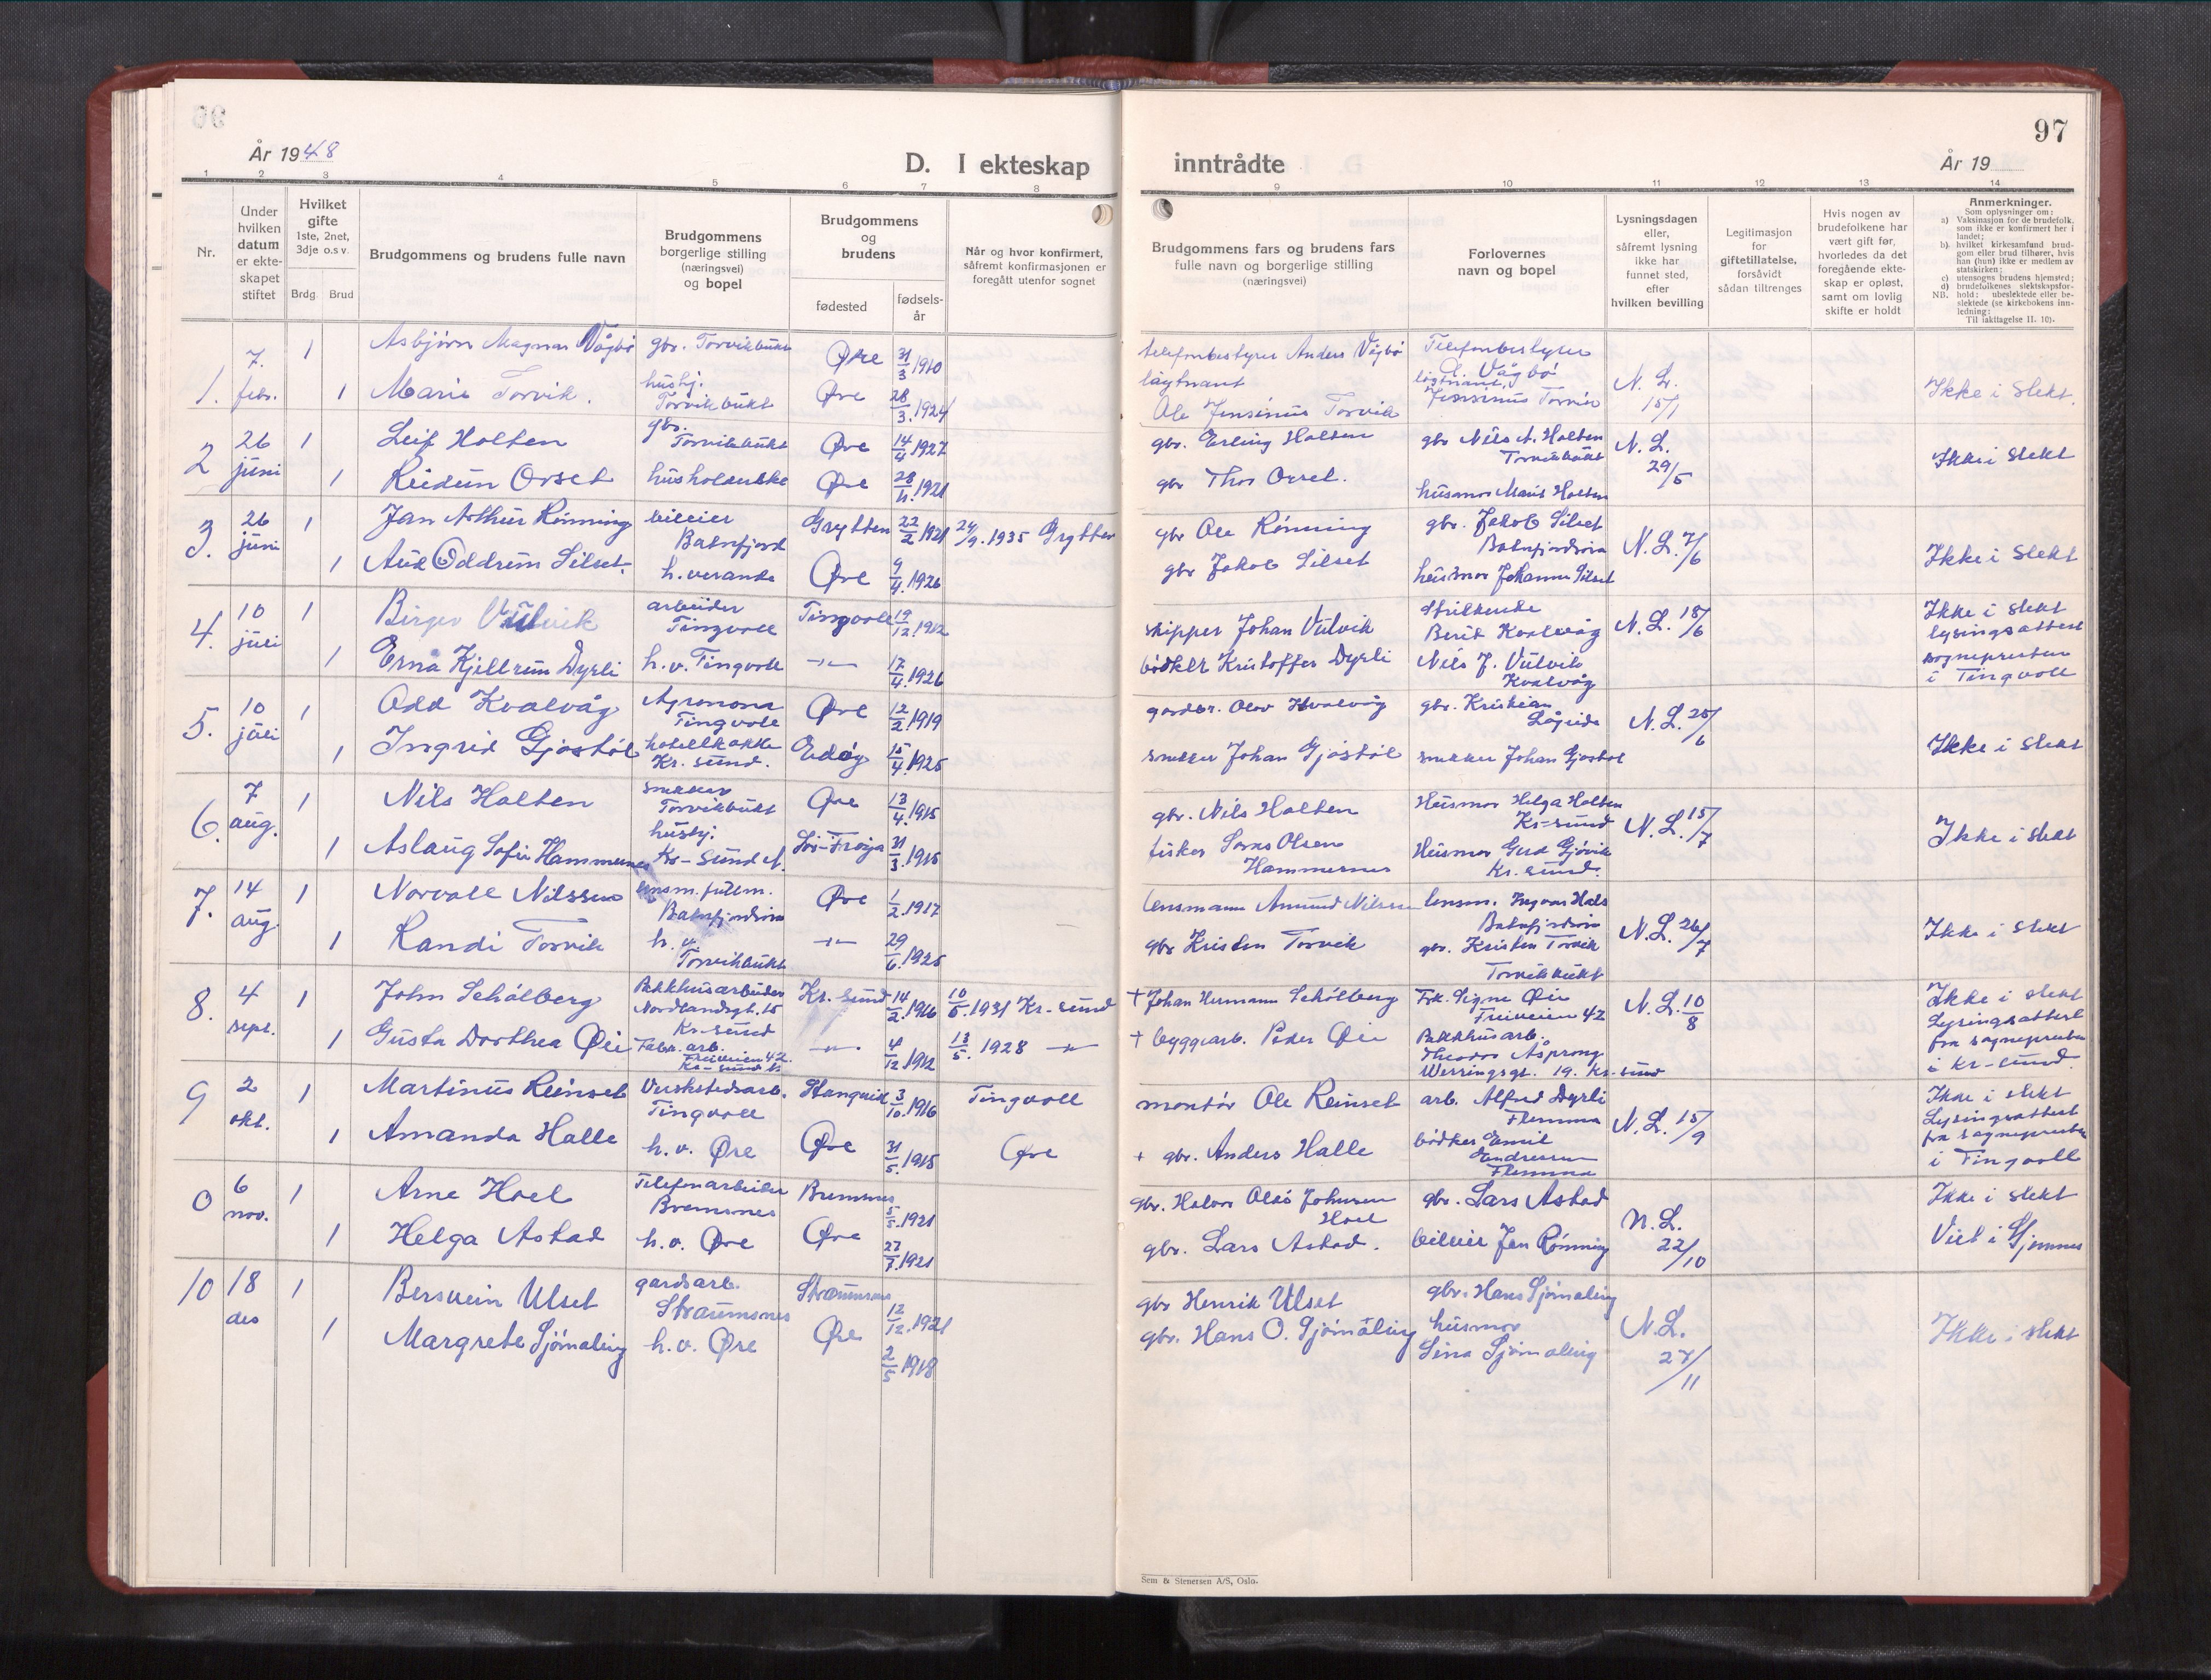 97
År 1948
D. I ekteskap inntrådte
År 19
1 2 3 4 5 6 7 8 9 10 11 12 13 14
Nr.
Under hvilken datum er ekte- skapet stiftet
Hvilket gifte 1ste, 2net, 3dje o.s.v.
Brdg. Brud
Brudgommens og brudens fulle navn
Brudgommens borgerlige stilling (næringsvei) og bopel
Brudgommens og brudens
fødested
fødsels- år
Når og hvor konfirmert, såfremt konfirmasjonen er foregått utenfor sognet
Brudgommens fars og brudens fars fulle navn og borgerlige stilling (næringsvei)
Forlovernes navn og bopel
Lysningsdagen eller, såfremt lysning ikke har funnet sted, efter hvilken bevilling
Legitimasjon for giftetillatelse, forsåvidt sådan tiltrenges
Hvis nogen av brudefolkene har vært gift før, hvorledes da det foregående ekte- skap er opløst, samt om lovlig skifte er holdt
Anmerkninger.
Som oplysninger om:
a) Vaksinasjon for de brudefolk, som ikke er konfirmert her i landet;
b) hvilket kirkesamfund brud- gom eller brud tilhører, hvis han (hun) ikke er medlem av statskirken;
c) utensogns brudens hjemsted;
d) brudefolkenes slektskapsfor- hold: ubeslektede eller be- slektede (se kirkebokens inn- ledning;
NB. Til iakttagelse II. 10).
1. 7. febr. 1 Asbjørn Magnar Vågbø gbr. Torvikbukt Øre 31/3 1910 telefonbestyrer Anders Vågbø Telefonbestyrer A. Vågbø N. L. 15/1 Ikke i slekt.
1 Marie Torvik. hushj. Torvikbukt Øre 28/3. 1924 løytnant Ole Jensinus Torvik løytnant Jensinus Torvik
2 26 juni 1 Leif Holten gbr. Torvikbukt Øre 14/4 1927 gbr. Erling Holten gbr Nils A. Holten Torvikbukt N. L. 29/5 Ikke i slekt
1 Reidun Orset husholderske Øre 28/4. 1921 gbr Thor Orset. husmor Marit Holten
3. 26 juni 1 Jan Arthur Rønning bileier Batnfjord Grytten 22/2 1921 24/9. 1935 Grytten gbr Ole Rønning gbr. Jakob Silset Batnfjordsøra N. L. 7/6 Ikke i slekt
1 Aud Oddrun Silset. h. verande Øre 9/4. 1926 gbr Jakob Silset husmor Johanna Silset
4. 10 juli 1 Birger Vulvik arbeider Tingvoll Tingvoll 19/12. 1912 skipper Johan Vulvik Berit Kvalvåg N. L. 18/6 Ikke i slekt lysingsattest sognepresten i Tingvoll
1 Erna Kjellrun Dyrli h. v. Tingvoll -"- 17/4. 1926 bødker Kristoffer Dyrli Nils J. Vulvik Kvalvåg
5. 10 juli 1 Odd Kvalvåg Agronom Tingvoll Øre 12/2 1919 gardbr. Olav Kvalvåg gbr. Kristian Løgeide N. L. 25/6 Ikke i slekt
1 Ingrid Gjøstøl hotellkokke Kr. sund. Edøy 15/4. 1925 snekker Johan Gjøstøl snekker Johan Gjøstøl
6. 7 aug. 1 Nils Holten snekker Torvikbukt Øre 13/4. 1915 gbr. Nils Holten Husmor Helga Holten Kr-sund N. L. 15/7 Ikke i slekt
1 Aslaug Sofie Hammernes hushj. Kr-sund N. Sør-Frøya 31/3. 1915 fisker Olsen Hammernes Husmor Gerd Gjøvik Kr. sund.
7. 14 aug. 1 Norvall Nilssen lensm. fullm. Batnfjordsøra Øre 1/2. 1917 lensmann Amund Nilssen lensm. Ingvar Hals Batnfjordsøra N. L. 26/7 Ikke i slekt
1 Randi Torvik h. v. Torvikbukt -"- 29/6. 1925 gbr Kristen Torvik gbr. Kristen Torvik Torvikbukt
8. 4 sept. 1 John Schølberg Pakkhusarbeider Nordlandsgt. 15 Kr-sund Kr. sund 14/2. 1916 10/5. 1931 Kr-sund + Johan Hermann Schølberg Frk. Signe Øie Freiveien 42 N. L. 10/8 Ikke i slekt Lysingsattest fra sognepresten i Kr-sund.
1 Gusta Dorthea Øie Fabr. arb. Freiveien 42. Kr-sund N -"- 4/12 1912 13/5. 1928 -"- + byggearb. Peder Øie Pakkhusarb. Theodor Asprong Werringsgt. 19. Kr-sund
9 2 okt. 1 Martinus Reinset Verkstedsarb. Tingvoll Stangvik 3/10. 1916 Tingvoll montør Ole Reinset arb. Alfred Dyrli Flemma N. L. 15/9 Ikke i slekt Lysingsattest fra sogneprest i Tingvoll
1 Amanda Halle h. v. Øre Øre 31/5. 1915 Øre + gbr. Anders Halle bødker Emil Endresen Flemma
0 6 nov. 1 Arne Hoel Telefonarbeider Bremsnes Bremsnes 5/5. 1921 gbr. Halvor Olas Johnsen Hoel gbr. Lars Astad N. L. 22/10 Ikke i slekt Viet i Gjemnes
1 Helga Astad h. v. Øre Øre 27/7. 1921 gbr. Lars Astad. bileier Jan Rønning
10 18 des 1 Bersvein Ulset gardsarb. Straumsnes Straumsnes 12/12. 1921 gbr Henrik Ulset gbr. Hans Sjømæling N. L. 27/11 Ikke i slekt
1 Margrete Sjømæling h. v. Øre Øre 2/5 1918 gbr. Hans O. Sjømæling husmor Lina Sjømæling
Sem & Stenersen A/S, Oslo.